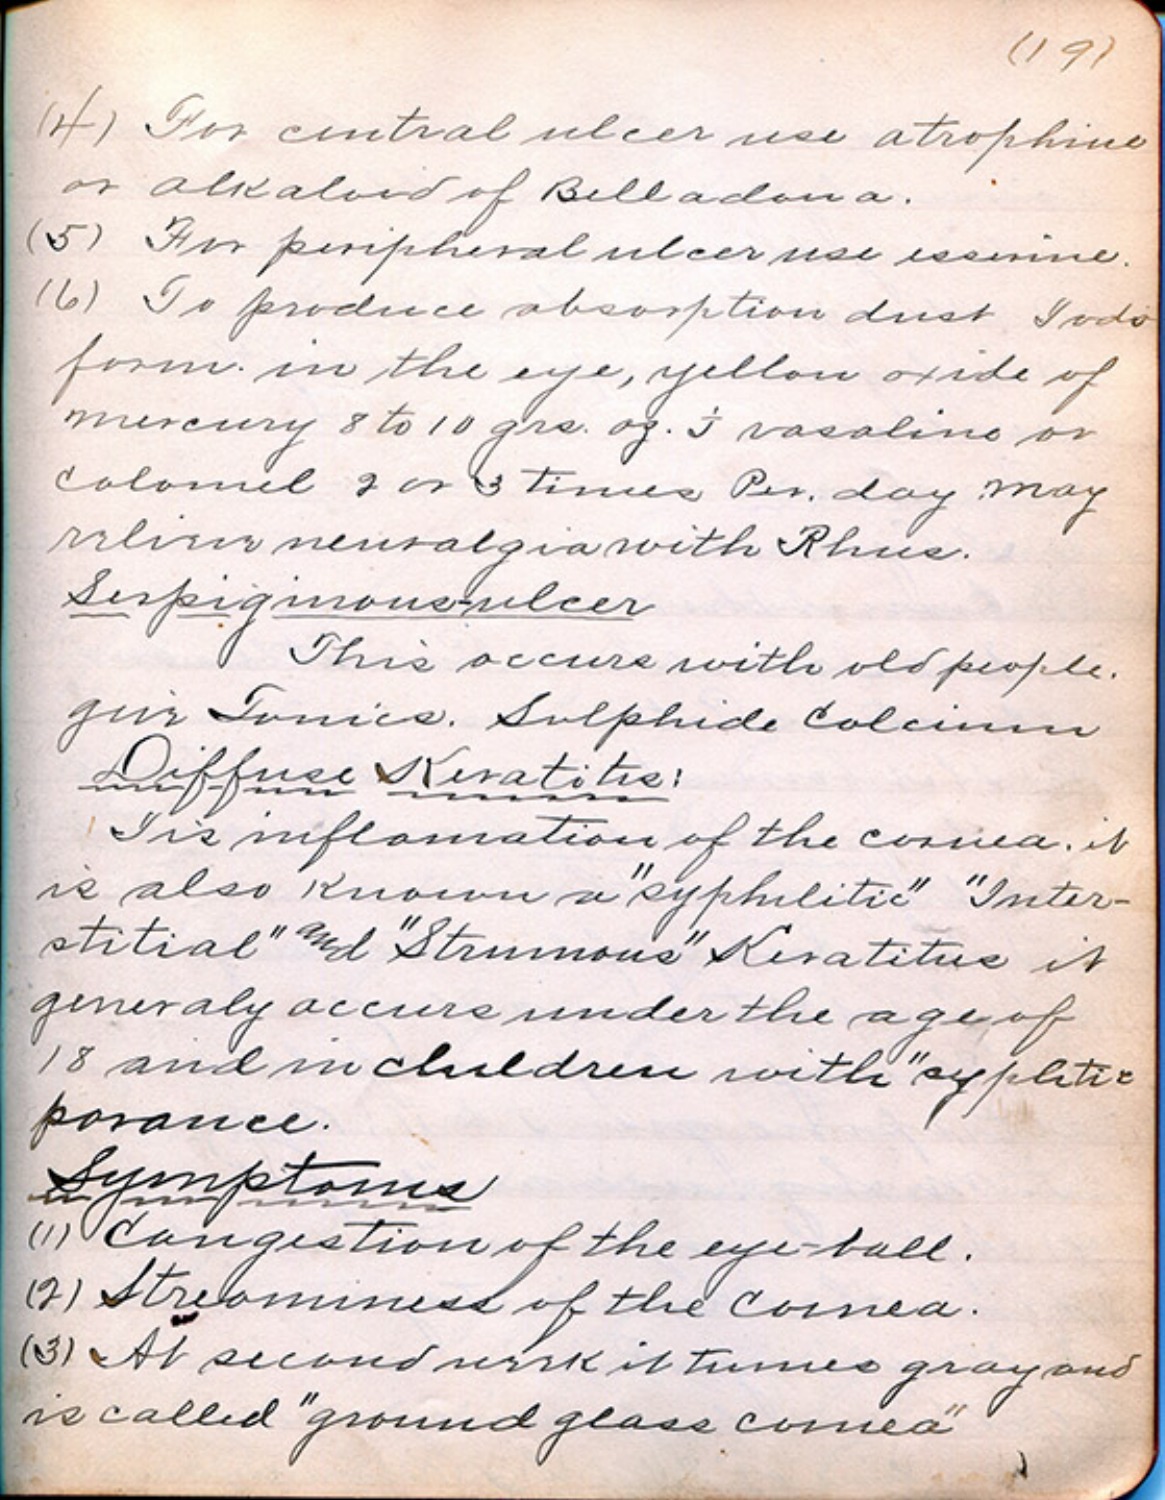 (19)
(4) For central ulcer use atrophine
or alkaloid of Belladona.
(5) For peripheral ulcer use esserine.
(6) To produce absorption dust Iodo
form. in the eye, yellow oxide of
mercury 8 to 10 grs. oz. i vasaline or
Calomel 2 or 3 times Per. day May
relieve neuralgia with Rhus.
Serpiginous-ulcer
This occurs with old people.
give Tonics. Sulphide Calcium
Diffuse Keratitis:
I is inflamation of the cornea. it
is also known a "syphilitic" "Inter-
stitial" and "Strumous" Keratitus it
generaly occurs under the age of
18 and in children with "syplitic
porance.
Symptoms
(1) Congestion of the eye-ball.
(2) Streaminess of the Cornea.
(3) At second week it turnes gray and
is called "ground glass cornea"